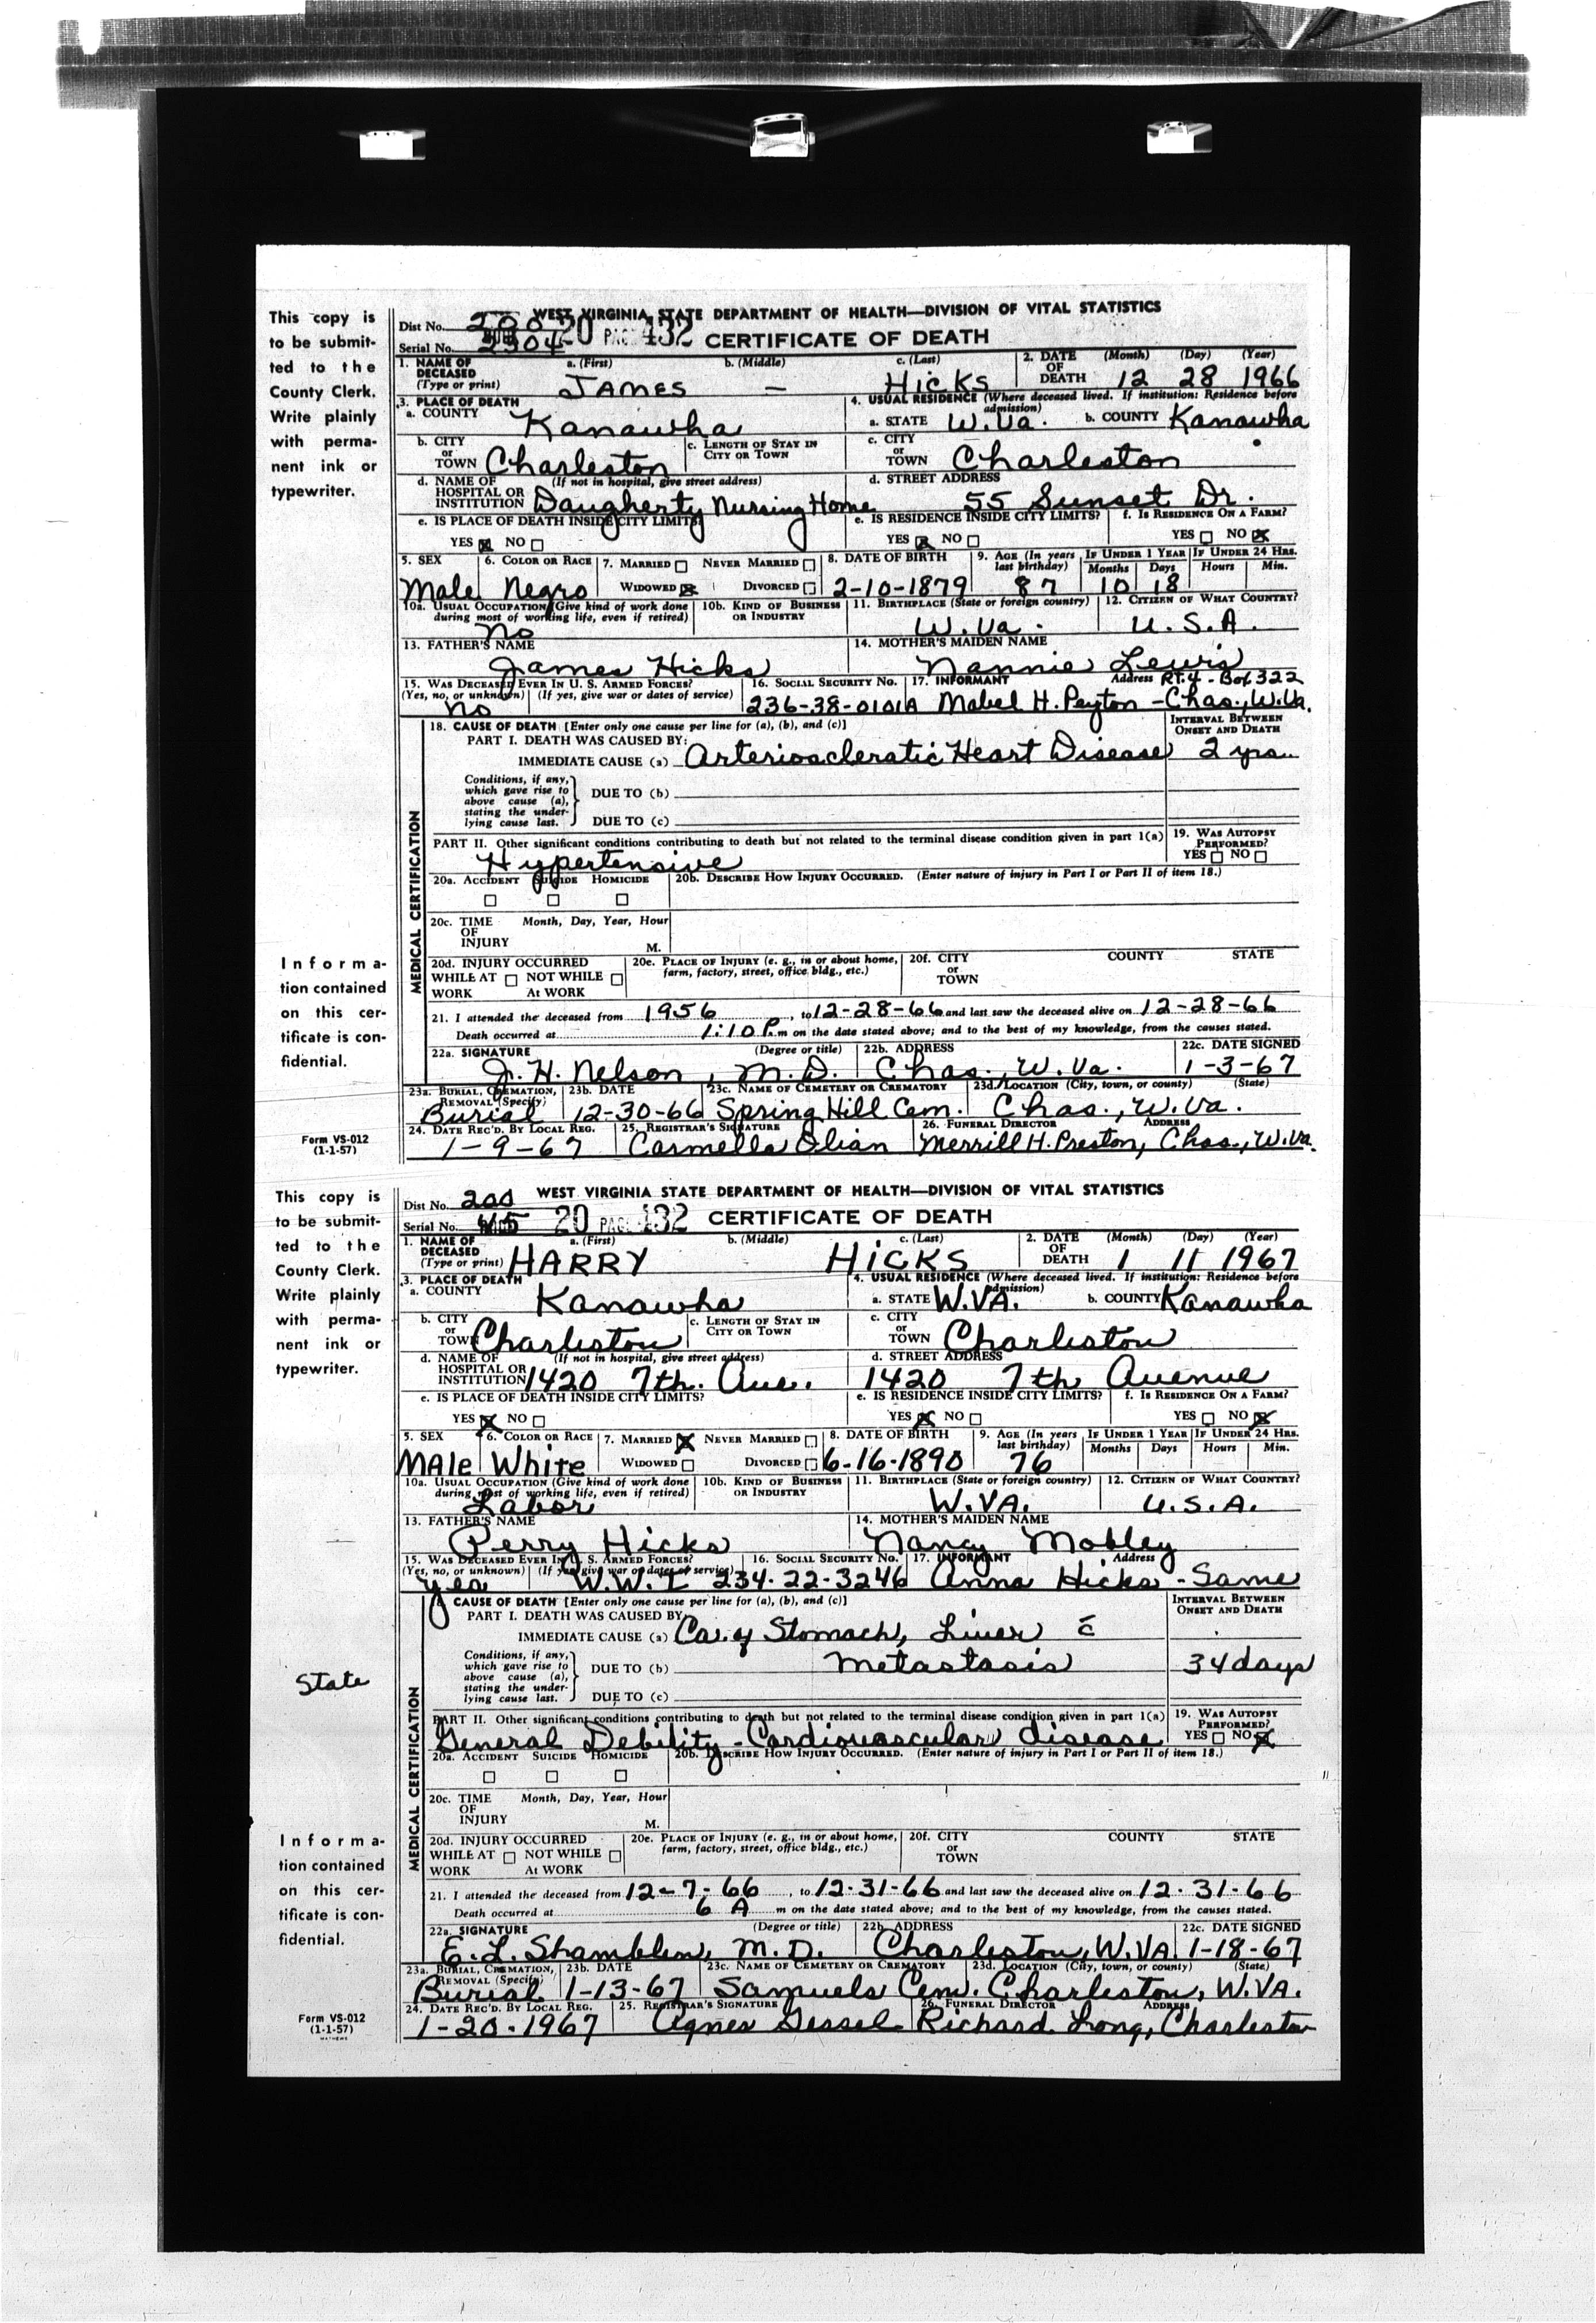 This copy is
to be submit-
ted to the
County Clerk.
Write plainly
with perma-
nent ink or
typewriter.
Informa-
tion contained
on this cer-
tificate is con-
fidential.
Form VS-012
(1-1-57)
WEST VIRGINIA STATE DEPARTMENT OF HEALTH—DIVISION OF VITAL STATISTICS
Dist No. 200
Serial No. 2304 20 PAGE 432 CERTIFICATE OF DEATH
1. NAME OF DECEASED (Type or print) a. (First) b. (Middle) c. (Last) 2. DATE OF DEATH (Month) (Day) (Year)
JAMES — HICKS 12 28 1966
3. PLACE OF DEATH 4. USUAL RESIDENCE (Where deceased lived. If institution: Residence before admission)
a. COUNTY Kanawha a. STATE W.Va. b. COUNTY Kanawha
b. CITY or TOWN Charleston c. LENGTH OF STAY IN CITY OR TOWN c. CITY or TOWN Charleston
d. NAME OF HOSPITAL OR INSTITUTION (If not in hospital, give street address) Daugherty Nursing Home d. STREET ADDRESS 55 Sunset Dr.
e. IS PLACE OF DEATH INSIDE CITY LIMITS? e. IS RESIDENCE INSIDE CITY LIMITS? f. IS RESIDENCE ON A FARM?
YES NO YES NO YES NO
5. SEX 6. COLOR OR RACE 7. MARRIED NEVER MARRIED 8. DATE OF BIRTH 9. AGE (In years last birthday) IF UNDER 1 YEAR IF UNDER 24 HRS.
Months Days Hours Min.
Male Negro WIDOWED DIVORCED 2-10-1879 87 10 18
10a. USUAL OCCUPATION (Give kind of work done during most of working life, even if retired) 10b. KIND OF BUSINESS OR INDUSTRY 11. BIRTHPLACE (State or foreign country) 12. CITIZEN OF WHAT COUNTRY?
No W.Va. U.S.A.
13. FATHER'S NAME 14. MOTHER'S MAIDEN NAME
James Hicks Nannie Lewis
15. WAS DECEASED EVER IN U. S. ARMED FORCES? 16. SOCIAL SECURITY No. 17. INFORMANT Address RT.4 - Box 322
(Yes, no, or unknown) (If yes, give war or dates of service)
No 236-38-0101A Mabel H. Peyton - Chas., W.Va.
MEDICAL CERTIFICATION
18. CAUSE OF DEATH [Enter only one cause per line for (a), (b), and (c)] INTERVAL BETWEEN ONSET AND DEATH
PART I. DEATH WAS CAUSED BY:
IMMEDIATE CAUSE (a) Arterioscleratic Heart Disease 2 yrs.
Conditions, if any, which gave rise to above cause (a), stating the underlying cause last.
DUE TO (b)
DUE TO (c)
PART II. Other significant conditions contributing to death but not related to the terminal disease condition given in part 1(a) 19. WAS AUTOPSY PERFORMED?
Hypertensive YES NO
20a. ACCIDENT SUICIDE HOMICIDE 20b. DESCRIBE HOW INJURY OCCURRED. (Enter nature of injury in Part I or Part II of item 18.)
20c. TIME OF INJURY Month, Day, Year, Hour M.
20d. INJURY OCCURRED WHILE AT WORK NOT WHILE At WORK 20e. PLACE OF INJURY (e. g., in or about home, farm, factory, street, office bldg., etc.) 20f. CITY or TOWN COUNTY STATE
21. I attended the deceased from 1956, to 12-28-66 and last saw the deceased alive on 12-28-66
Death occurred at 1:10 P.m on the date stated above; and to the best of my knowledge, from the causes stated.
22a. SIGNATURE (Degree or title) 22b. ADDRESS 22c. DATE SIGNED
J. H. Nelson, M.D. Chas., W.Va. 1-3-67
23a. BURIAL, CREMATION, REMOVAL (Specify) 23b. DATE 23c. NAME OF CEMETERY OR CREMATORY 23d. LOCATION (City, town, or county) (State)
Burial 12-30-66 Spring Hill Cem. Chas., W.Va.
24. DATE REC'D. BY LOCAL REG. 25. REGISTRAR'S SIGNATURE 26. FUNERAL DIRECTOR ADDRESS
1-9-67 Carmella Olian Merrill H. Preston, Chas., W.Va.
This copy is
to be submit-
ted to the
County Clerk.
Write plainly
with perma-
nent ink or
typewriter.
State
Informa-
tion contained
on this cer-
tificate is con-
fidential.
Form VS-012
(1-1-57)
WEST VIRGINIA STATE DEPARTMENT OF HEALTH—DIVISION OF VITAL STATISTICS
Dist No. 200
Serial No. 20 PAGE 432 CERTIFICATE OF DEATH
1. NAME OF DECEASED (Type or print) a. (First) b. (Middle) c. (Last) 2. DATE OF DEATH (Month) (Day) (Year)
HARRY HICKS 1 11 1967
3. PLACE OF DEATH 4. USUAL RESIDENCE (Where deceased lived. If institution: Residence before admission)
a. COUNTY Kanawha a. STATE W.VA. b. COUNTY Kanawha
b. CITY or TOWN Charleston c. LENGTH OF STAY IN CITY OR TOWN c. CITY or TOWN Charleston
d. NAME OF HOSPITAL OR INSTITUTION (If not in hospital, give street address) 1420 7th. Ave. d. STREET ADDRESS 1420 7th Avenue
e. IS PLACE OF DEATH INSIDE CITY LIMITS? e. IS RESIDENCE INSIDE CITY LIMITS? f. IS RESIDENCE ON A FARM?
YES NO YES NO YES NO
5. SEX 6. COLOR OR RACE 7. MARRIED NEVER MARRIED 8. DATE OF BIRTH 9. AGE (In years last birthday) IF UNDER 1 YEAR IF UNDER 24 HRS.
Months Days Hours Min.
MAle White WIDOWED DIVORCED 6-16-1890 76
10a. USUAL OCCUPATION (Give kind of work done during most of working life, even if retired) 10b. KIND OF BUSINESS OR INDUSTRY 11. BIRTHPLACE (State or foreign country) 12. CITIZEN OF WHAT COUNTRY?
Labor W.VA. U.S.A.
13. FATHER'S NAME 14. MOTHER'S MAIDEN NAME
Perry Hicks Nancy Mobley
15. WAS DECEASED EVER IN U. S. ARMED FORCES? 16. SOCIAL SECURITY No. 17. INFORMANT Address
(Yes, no, or unknown) (If yes, give war or dates of service)
yes W.W.I 234-22-3246 Anna Hicks - Same
MEDICAL CERTIFICATION
CAUSE OF DEATH [Enter only one cause per line for (a), (b), and (c)] INTERVAL BETWEEN ONSET AND DEATH
PART I. DEATH WAS CAUSED BY:
IMMEDIATE CAUSE (a) Ca. of Stomach, Liver c̄
Conditions, if any, which gave rise to above cause (a), stating the underlying cause last.
DUE TO (b) Metastasis 34 days
DUE TO (c)
PART II. Other significant conditions contributing to death but not related to the terminal disease condition given in part 1(a) 19. WAS AUTOPSY PERFORMED?
General Debility - Cardiovascular disease YES NO
20a. ACCIDENT SUICIDE HOMICIDE 20b. DESCRIBE HOW INJURY OCCURRED. (Enter nature of injury in Part I or Part II of item 18.)
20c. TIME OF INJURY Month, Day, Year, Hour M.
20d. INJURY OCCURRED WHILE AT WORK NOT WHILE At WORK 20e. PLACE OF INJURY (e. g., in or about home, farm, factory, street, office bldg., etc.) 20f. CITY or TOWN COUNTY STATE
21. I attended the deceased from 12-7-66, to 12-31-66 and last saw the deceased alive on 12-31-66
Death occurred at 6 A m on the date stated above; and to the best of my knowledge, from the causes stated.
22a. SIGNATURE (Degree or title) 22b. ADDRESS 22c. DATE SIGNED
E. L. Shamblen, M.D. Charleston, W.VA. 1-18-67
23a. BURIAL, CREMATION, REMOVAL (Specify) 23b. DATE 23c. NAME OF CEMETERY OR CREMATORY 23d. LOCATION (City, town, or county) (State)
Burial 1-13-67 Samuels Cem. Charleston, W.VA.
24. DATE REC'D. BY LOCAL REG. 25. REGISTRAR'S SIGNATURE 26. FUNERAL DIRECTOR ADDRESS
1-20-1967 Agnes Gessel Richard Long, Charleston